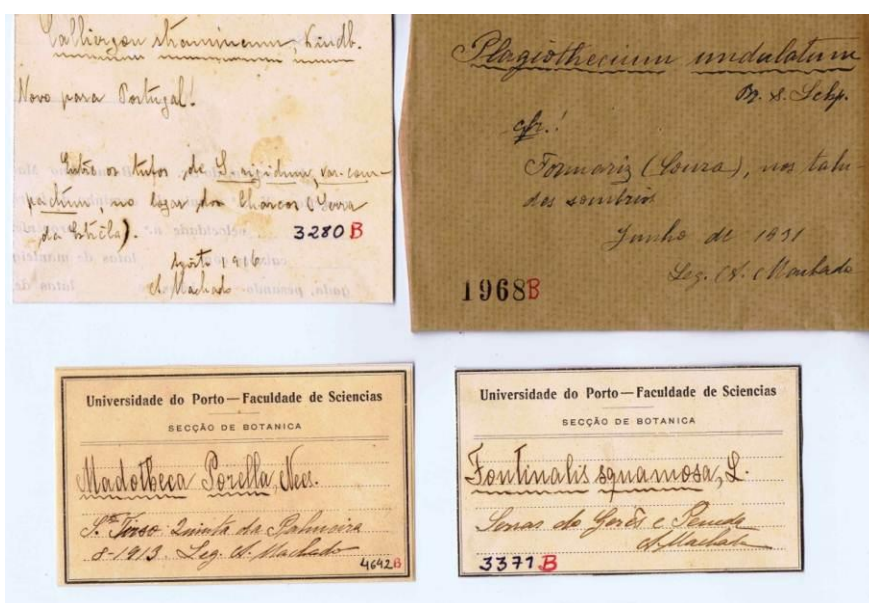 Calliergon stramineum, Kindb.
Novo para Portugal!
Entre os tufos de S. rigidum, var. com-
pactum, no logar dos Charcos (Serra
da Estrela).
3280 B
Agosto 1916
A. Machado
Plagiothecium undulatum
Br. & Schp.
cfr.!
Formariz (Coura), nos talu-
des sombrios
Junho de 1931
Leg. A. Machado
1968B
Universidade do Porto — Faculdade de Sciencias
SECÇÃO DE BOTANICA
Madotheca Porella, Nees.
Sto Tirso: Quinta da Palmeira
8-1913. Leg. A. Machado
4692B
Universidade do Porto — Faculdade de Sciencias
SECÇÃO DE BOTANICA
Fontinalis squamosa, L.
Serras do Gerês e Peneda
A. Machado
3371 B